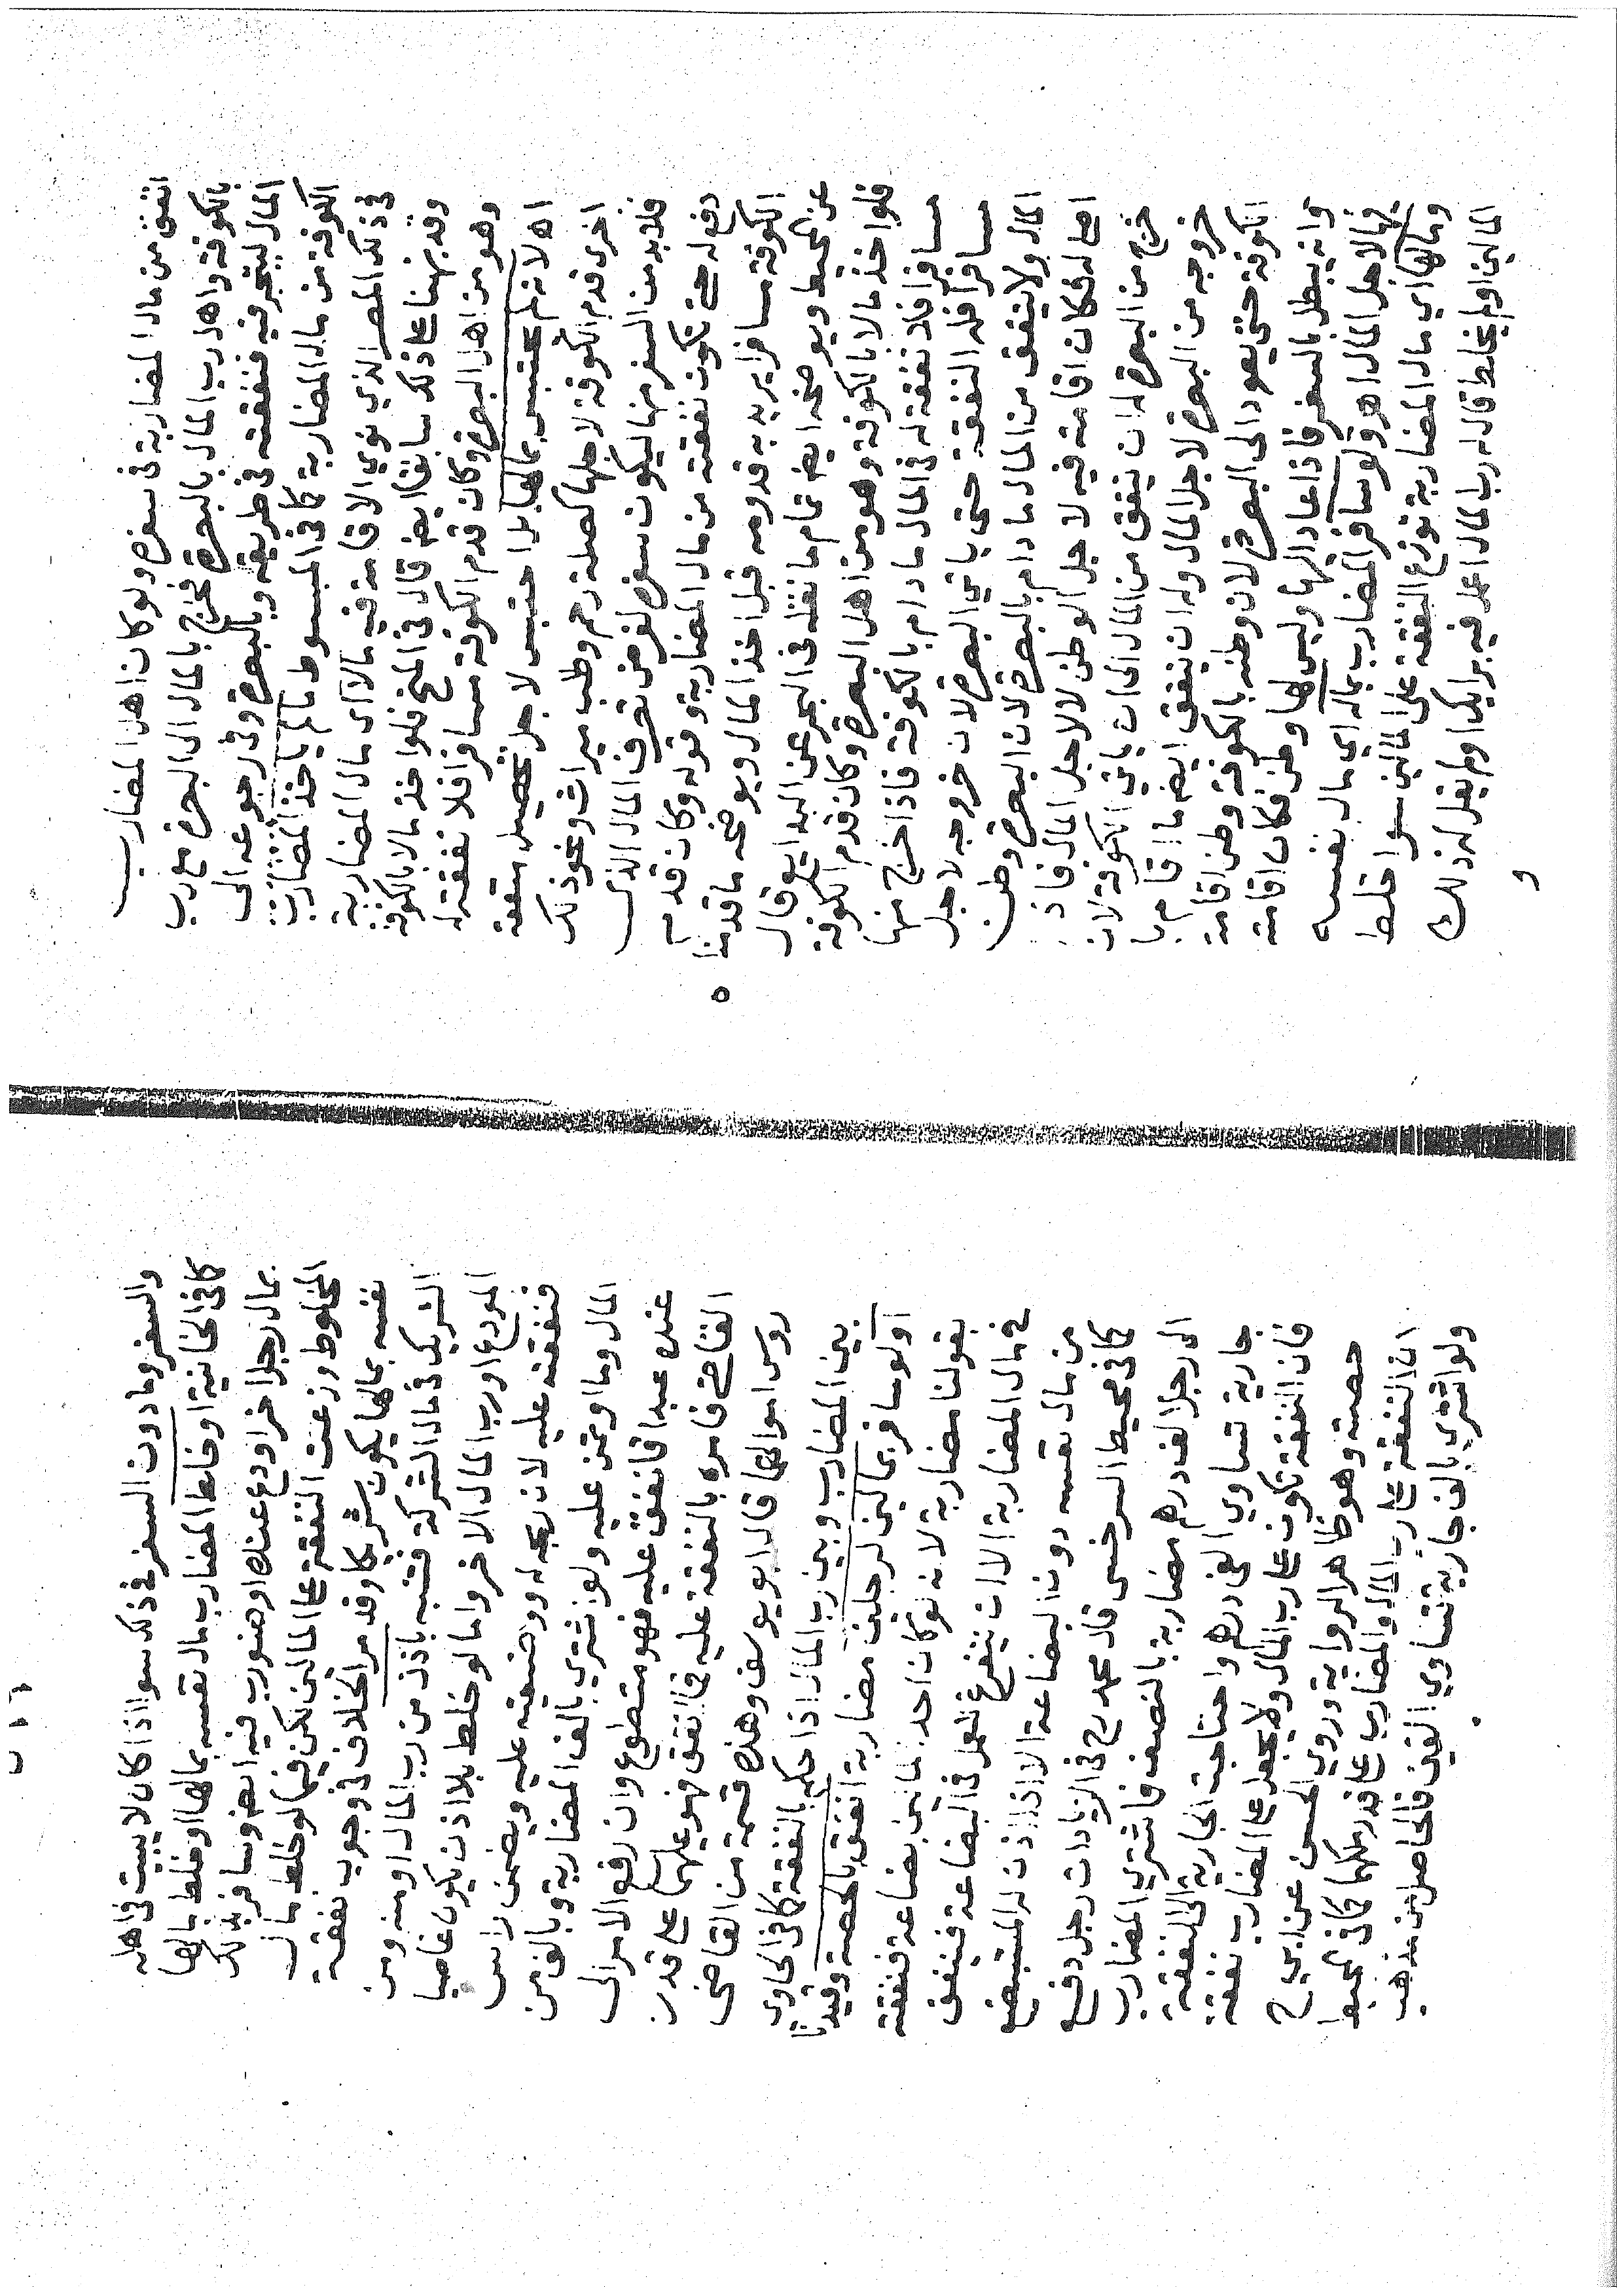 اتفق من مال المضاربة فى سفره ولو كان اهل المضارب
بالكوفة واهل رب المال بالبصرة فخرج بالمال الى البصرة مع رب
المال ليتجر فيه فنفقته فى طريقه وبالبصرة وفى رجوعه الى
الكوفة من مال المضاربة كما فى المبسوط ما لم ياخذ المضارب
فى ذلك المصر الذي نوي الاقامة فيه مالا اى مال المضاربة
وقد نبهنا على ذلك سابقا ايضا قال فى المنح فلو اخذ مالا بالكوفة
وهو من اهل البصرة وكان قدم الكوفة مسافرا فلا نفقة له
اه لانه لم يحتبس بمالها بل احتبس لاجل تحصيل منفعة
اخرى قدم الكوفة لاجلها كصلة رحم وطلب ميراث ونحو ذلك
فلا بد من السفر منها ليكون سفره لغرض تصرف المال الذى
دفع له حتى تكون نفقته من مال المضاربة وقوله وكان قدم
الكوفة مسافرا يريد به قدومه قبل اخذ المال ويوضحه ما قدمنا
عن المحيط ويوضحه ايضا تمام ما نقله فى البحر عن البدايع قال
فلو اخذ مالا بالكوفة وهو من اهل البصرة وكان قدم الكوفة
مسافرا فلا نفقة له فى المال ما دام بالكوفة فاذا خرج منها
مسافرا فله النفقة حتى ياتي البصرة لان خروجه لاجل
المال ولا ينفق من المال ما دام بالبصرة لان البصرة وطن
اصلي له فكان اقامته فيه لاجل الوطن لا لاجل المال فاذا
خرج من البصرة له ان ينفق من المال الى ان ياتي الكوفة لان
خروجه من البصرة لاجل المال وله ان ينفق ايضا ما اقام با
الكوفة حتى يعود الى البصرة لان وطنه بالكوفة وطن اقامة
وانه يبطل بالسفر فاذا عاد اليها وليس لها وطن فكان اقامته
فيها لاجل المال اه ولو سافر المضارب بماله اي مال نفسه
ومالها اي مال المضاربة توزع النفقة على المالين سوا خلط
المالين اولم يخلط قال له رب المال اعمل فيه برايك اولم يقل له ذلك
و
والسفر وما دون السفر فى ذلك سوا اذا كان لا يبيت فى اهله
كما فى الخانية او خلط المضارب مال نفسه بمالها او خلط مالها
بمال رجل اخر اودع عنده او هنو رب فيه ايضا وسافر بذلك
المخلوط وزعت النفقة على المالين لكن فيما لو خلط مال
نفسه بمالها يكون شريكا وقد مر الخلاف فى وجوب نفقة
الشريك فى مال الشركة فتنبه باذن من رب المال او منه ومن
المودع او رب المال الاخر واما لو خلط بلا اذن يكون غاصبا
فنفقته عليه لان ربحه له ووضيعته عليه ويضمن راس
المال وما اوتمن عليه ولو اشتري بالف المضاربة وبالف من
عنده عبدا فانفق عليه فهو متطوع وان رفع الامر الى
القاضى فامره بالنفقة عليه فما انفق فهو عليهما على قدر
روس اموالهما قال ابو يوسف وهذه قسمة من القاضى
بين المضارب وبين رب المال اذا حكم بالنفقة كما فى الحاوى
او لو سافر بمالين لرجلين مضاربة انفق بالحصة وقيدنا
بقولنا مضاربة لانه لو كان احد المالين بضاعة فنفقته
في مال المضاربة الا ان يتفرغ للعمل فى البضاعة فينفق
من مال نفسه دون البضاعة الا اذا اذن له المستبضع
كما فى محيط السرخسى قال محمد رح فى الزيادات رجل دفع
الى رجل الف درهم مضاربة بالنصف فاشترى المضارب
جارية تساوي الفى درهم واحتاجت الجارية الى النفقة
فان النفقة تكون على رب المال ولا يجعل على المضارب نفقة
حصته وهو ظاهر الرواية وروي الحسن عن ابي ح
ان النفقة على رب المال والمضارب على قدر ملكهما كما فى المحيط
ولو اشترى بالف جارية تساوي الفين فالحاصل من مذهب